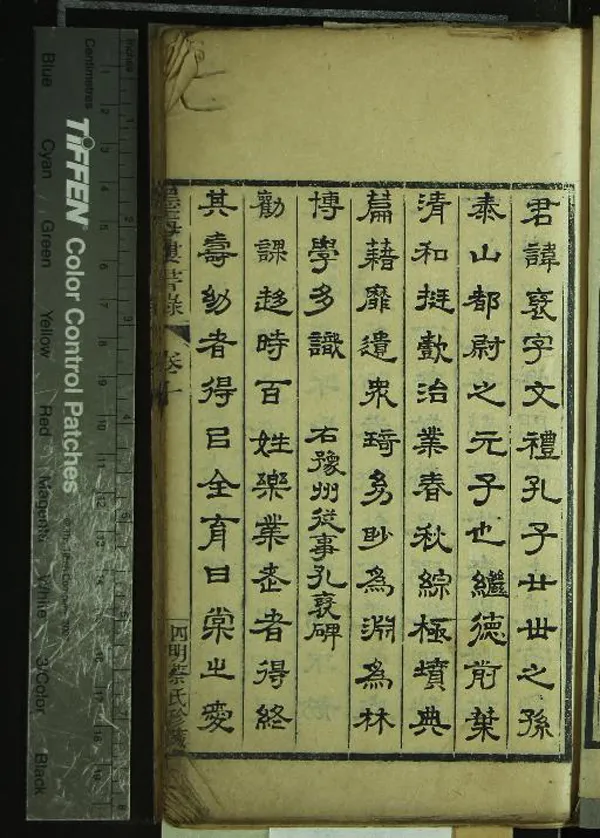 君諱褒字文禮孔子廿世之孫
泰山都尉之元子也繼德前葉
清和挺懿治業春秋綜極墳典
篇藉靡遺眾琦幼眇為淵為林
博學多識　右豫州從事孔褒碑
勸課趍時百姓樂業老者得終
其壽幼者得㠯全育甘棠之愛
墨海樓書錄　卷十　四明蔡氏珍藏
TIFFEN® Color Control Patches
Centimetres
Inches
Blue Cyan Green Yellow Red Magenta White 3/Color Black